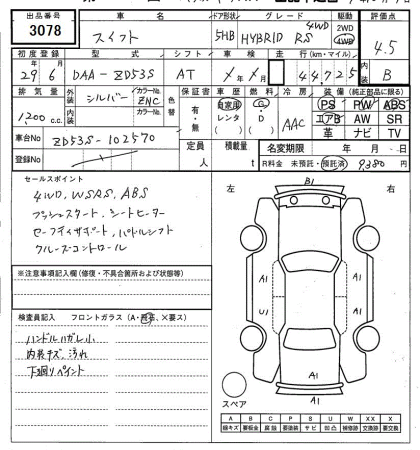 出品番号 車名 ドア形状 グレード 駆動 評価点
3078 スイフト 5HB HYBRID RS 4WD 2WD 4WD 4.5
初度登録 型式 シフト 車検 走行(km・マイル) 内装
29年 6月 DAA-ZD53S AT X年X月 44,725 B
排気量 外装 シルバー カラーNo. ZNC 色替 保証書 車歴 燃料 冷房 装備(純正部品に限る)
1200 c.c. 内装 カラーNo. 有・無 自家用 レンタ G・D AAC PS PW ABS
エアB AW SR
革 ナビ TV
車台No ZD53S-102570 定員 人 積載量 kg 名変期限 年 月 日
登録No R料金 未預託・預託済 9,380 円
セールスポイント
4WD、WSRS、ABS
プッシュスタート、シートヒーター
セーフティサポート、パドルシフト
クルーズコントロール
※注意事項記入欄(修復・不具合箇所および状態等)
検査員記入 フロントガラス(A・飛石、×要ス)
ハンドルハガレ小
内装キズ、汚れ
下廻りペイント
左 右
B1
A1 A1
U1 A1
A1
A1
スペア
A B C P S U W X XX
線キズ 要板金 腐蝕 要塗装 サビ 凹凸 補修跡 交換跡 要交換